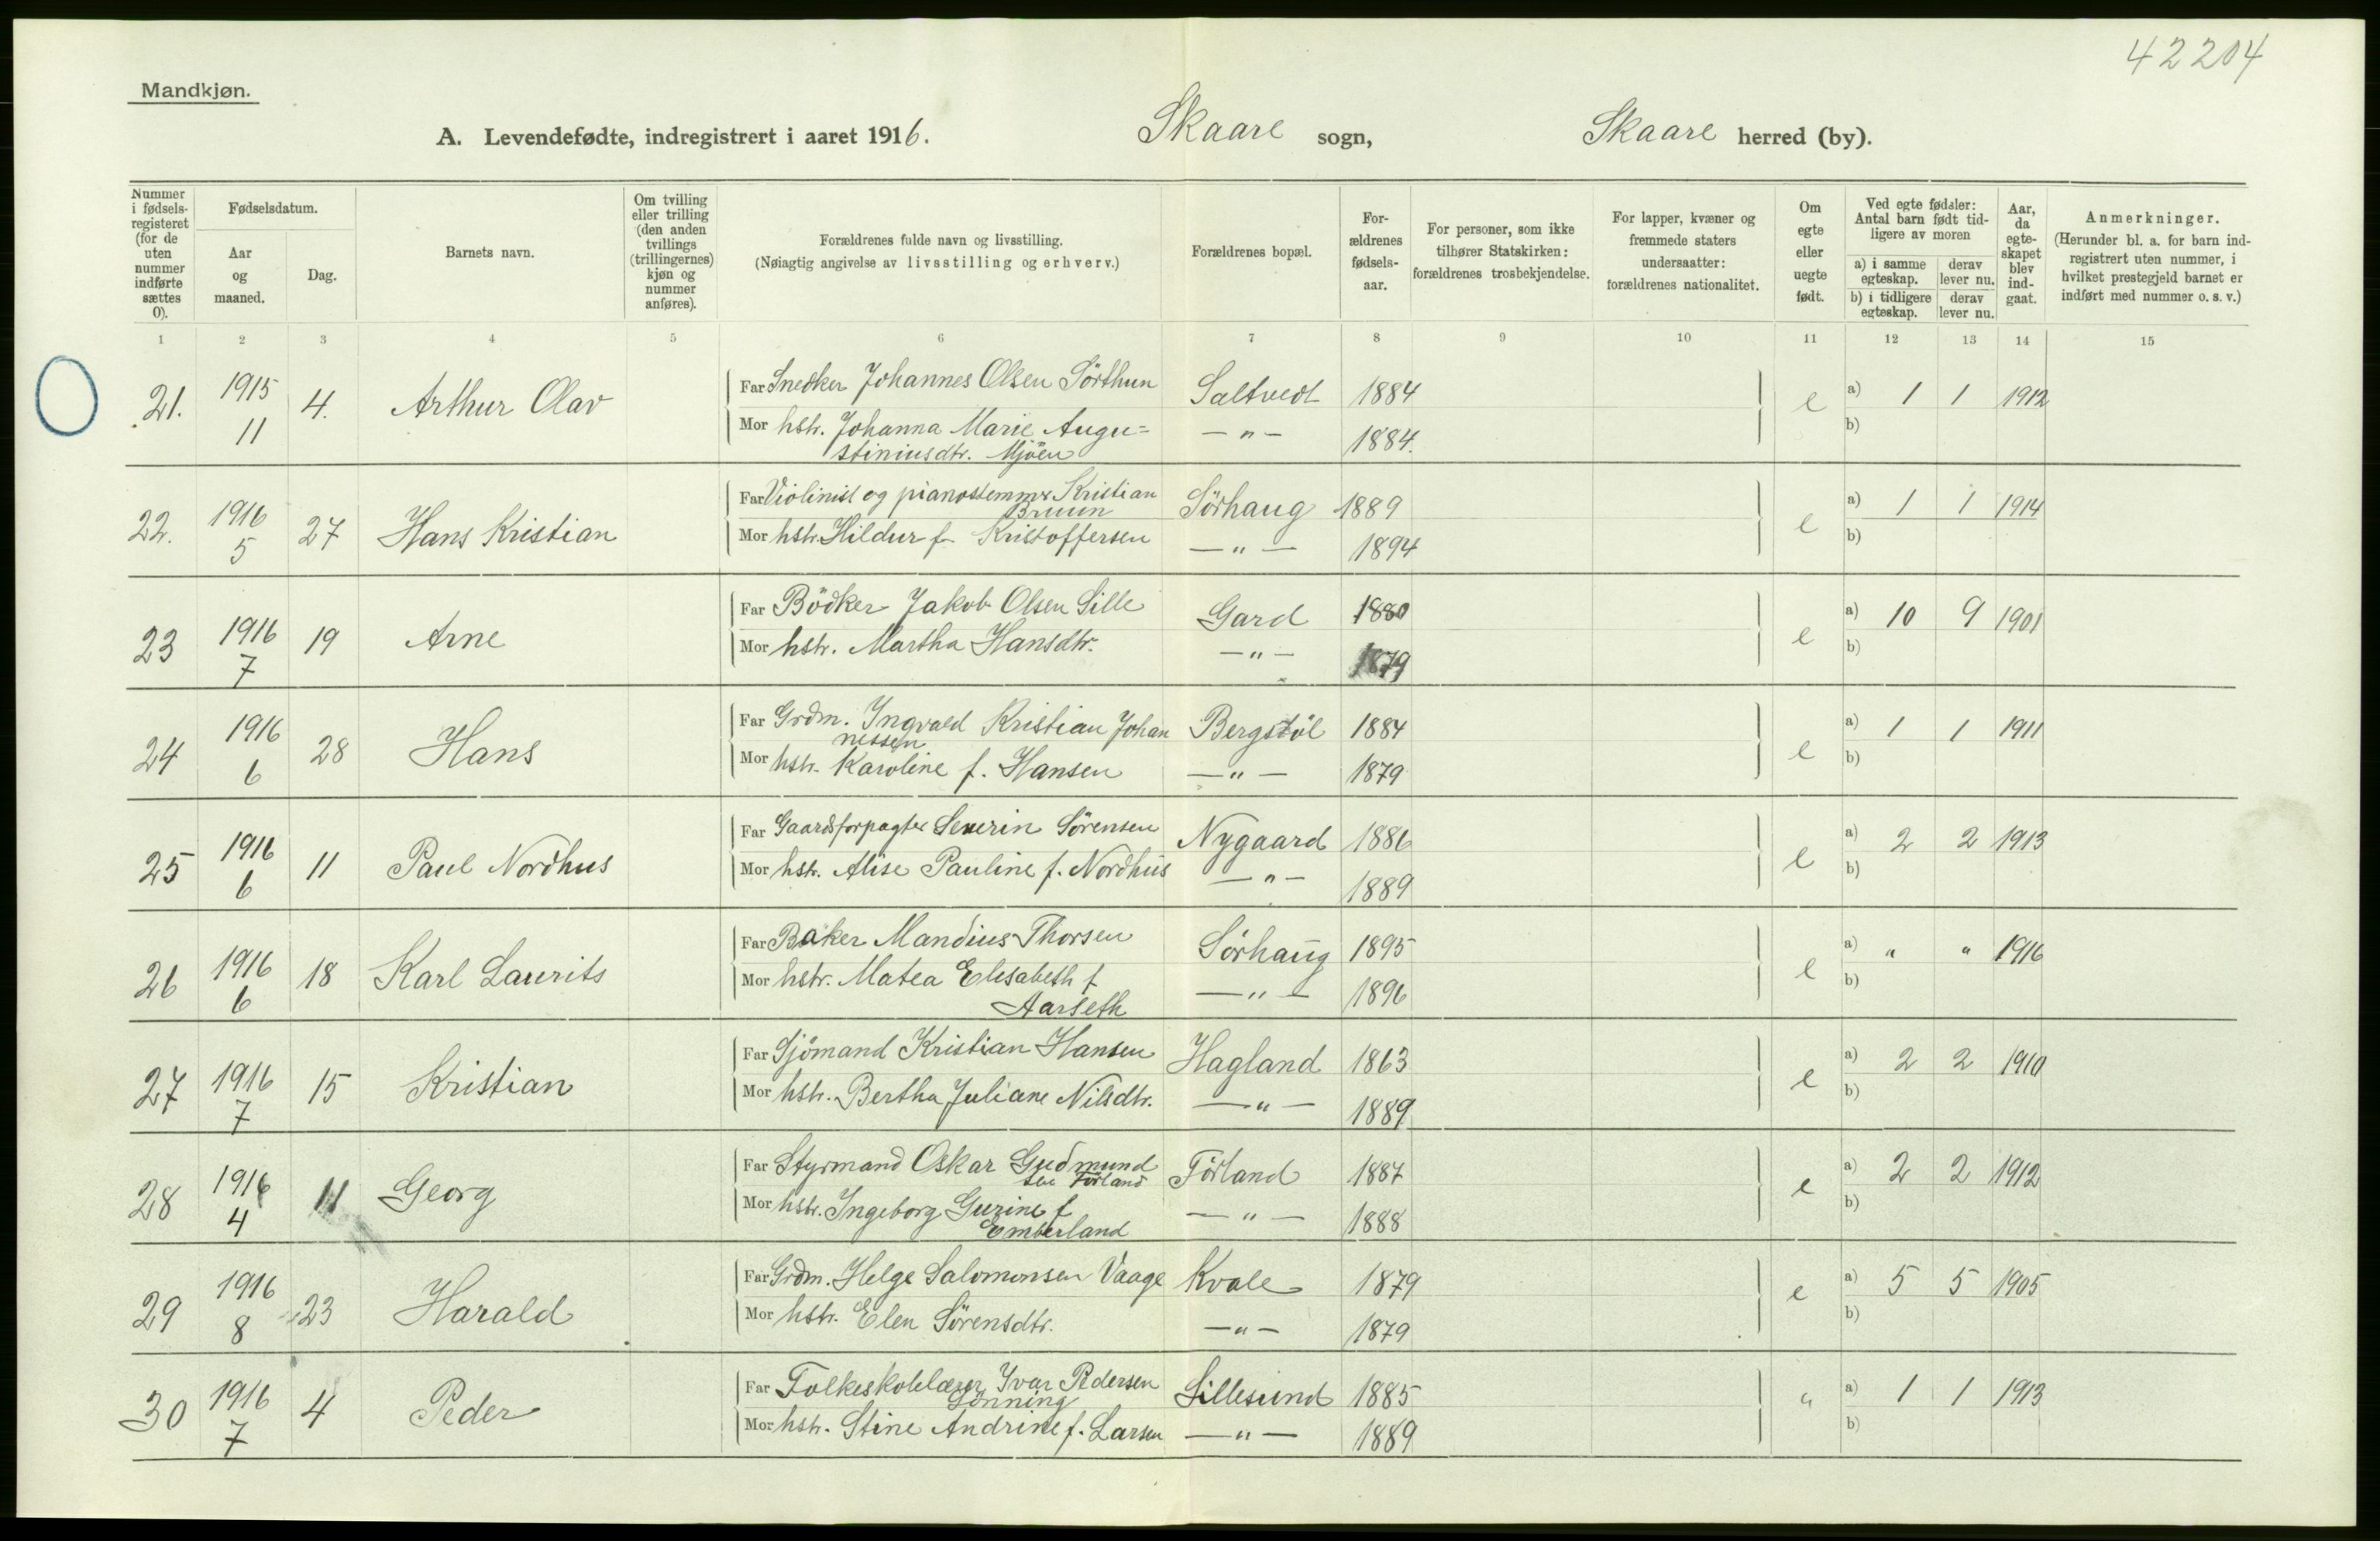 42204
Mandkjøn.
A. Levendefødte, indregistrert i aaret 1916. Skaare sogn, Skaare herred (by).
Nummer i fødselsregisteret (for de uten nummer indførte sættes 0).
Fødselsdatum.
Aar og maaned.
Dag.
Barnets navn.
Om tvilling eller trilling (den anden tvillings (trillingernes) kjøn og nummer anføres).
Forældrenes fulde navn og livsstilling.
(Nøiagtig angivelse av livsstilling og erhverv.)
Forældrenes bopæl.
Forældrenes fødselsaar.
For personer, som ikke tilhører Statskirken: forældrenes trosbekjendelse.
For lapper, kvæner og fremmede staters undersaatter: forældrenes nationalitet.
Om egte eller uegte født.
Ved egte fødsler: Antal barn født tidligere av moren
a) i samme egteskap. derav lever nu.
b) i tidligere egteskap. derav lever nu.
Aar, da egteskapet blev indgaat.
Anmerkninger.
(Herunder bl. a. for barn indregistrert uten nummer, i hvilket prestegjeld barnet er indført med nummer o. s. v.)
1 2 3 4 5 6 7 8 9 10 11 12 13 14 15
21. 1915 11 4. Arthur Olav Far Snedker Johannes Olsen Sörthun Saltvedt 1884 e a) 1 1 1912
Mor hstr. Johanna Marie Augu= — " — 1884. b)
stiniusdtr. Mjöen
22. 1916 5 27 Hans Kristian Far Violinist og pianostemmer Kristian Bruun Sörhaug 1889 e a) 1 1 1914
Mor hstr. Hildur f Kristoffersen — " — 1894 b)
23 1916 7 19 Arne Far Bödker Jakob Olsen Lille Gard 1880 e a) 10 9 1901
Mor hstr. Martha Hansdtr. — " — 1879 b)
24 1916 6 28 Hans Far Grdm. Ingvald Kristian Johan Bergstöl 1884 e a) 1 1 1911
nessen
Mor hstr. Karoline f. Hansen — " — 1879 b)
25 1916 6 11 Paul Nordhus Far Gaardsforpagter Severin Sörensen Nygaard 1886 e a) 2 2 1913
Mor hstr. Alise Pauline f. Nordhus — " — 1889 b)
26 1916 6 18 Karl Laurits Far Baker Mandius Thorsen Sörhaug 1895 e a) " " 1916
Mor hstr. Matea Elisabeth f — " — 1896 b)
Aarseth
27 1916 7 15 Kristian Far Sjömand Kristian Hansen Hagland 1863 e a) 2 2 1910
Mor hstr. Bertha Juliane Nilsdtr. — " — 1889 b)
28 1916 4 11 Georg Far Styrmand Oskar Gudmund Förland 1887 e a) 2 2 1912
sen Förland
Mor hstr. Ingeborg Gurine f — " — 1888 b)
Emberland
29 1916 8 23 Harald Far Grdm. Helge Salomonsen Vaage Kvale 1879 e a) 5 5 1905
Mor hstr. Elen Sörensdtr. — " — 1879 b)
30 1916 7 4 Peder Far Folkeskolelærer Ivar Pedersen Lillesund 1885 " a) 1 1 1913
Lönning
Mor hstr. Stine Andrine f. Larsen — " — 1889 b)